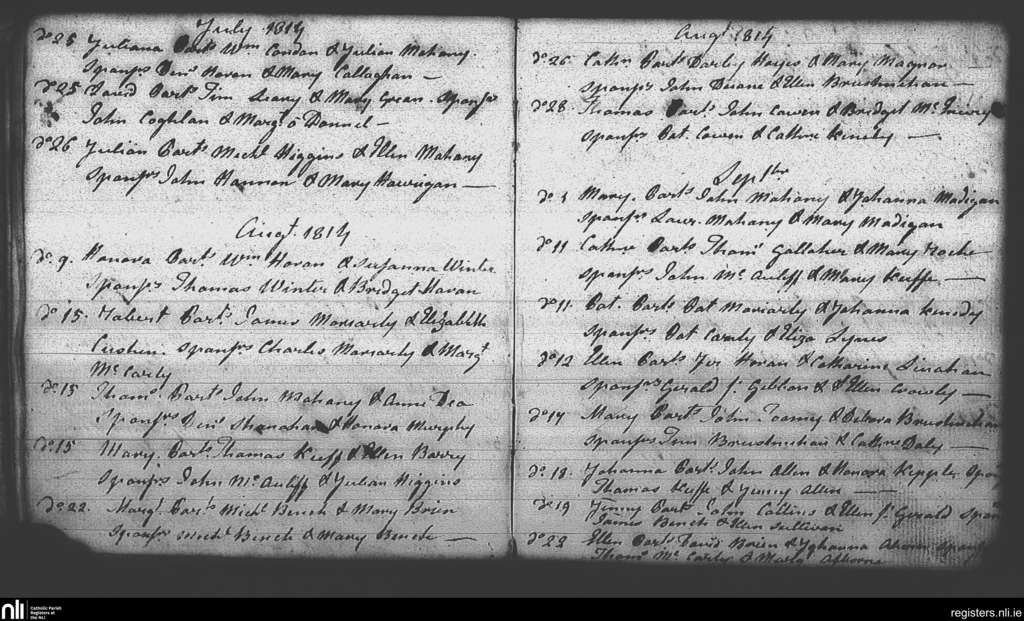 July 1814
do 25 Juliana Parts Wm Condon & Julian Mahony.
Sponsrs Denis Horan & Mary Callaghan —
do 25 David Parts Tim Leary & Mary Crean. Sponsrs
John Coghlan & Margt o Donnel —
do 26 Julian Parts Michl Higgins & Ellen Mahony
Sponsrs John Hannon & Mary Hourigan —
Augt. 1814
do. 9. Honora Parts Wm Horan & Susanna Winter
Sponsrs Thomas Winter & Bridget Horan
do 15. Robert Parts. James Moriarty & Elizabeth
Cushen. Sponsrs Charles Moriarty & Margt
Mc Carty
do 15 Thoms. Parts John Mahony & Anne Dea
Sponsrs Denis Shanahan & Honora Murphy
do. 15 Mary. Parts Thomas Keeff & Ellen Barry
Sponsrs John Mc. Auliff & Julian Higgins
do 22. Margt. Parts Michl Bench & Mary Brien
Sponsrs Michl Bench & Mary Bench —
Augt 1814
do 26. Cathn Parts Darby Hayes & Mary Magnor
Sponsrs John Duane & Ellen Brusnahan —
do 28 Thomas Parts. John Cowen & Bridget Mc
Sponsrs Pat. Cowen & Cathne Kennedy —
Septbr
do 1 Mary. Parts John Mahony & Johanna Madigan
Sponsrs Laur. Mahony & Mary Madigan
do 11 Cathne Parts Thoms Gallaher & Mary Roche
Sponsrs John Mc. Auliff & Mary Keeffe —
do 11. Pat. Parts Pat Moriarty & Johanna Kennedy
Sponsrs Pat Carty & Eliza Lyons
do 12 Ellen Parts Jer Horan & Catharine Linahan
Sponsrs Gerald fz. Gibbon & Ellen Crowly —
do 17 Mary Parts John Toomy & Debora Brusnahan
Sponsrs Tim Brusnahan & Cathne Daly —
do. 18. Johanna Parts. John Allen & Honora Keppler Spon
Thomas Keeffe & Jenny Allen —
do 19 Jenny Parts John Collins & Ellen fz. Gerald Spon
James Bench & Ellen Sullivan
do 22 Ellen Parts David Brien & Johanna Ahern Spon
Thoms Mc. Carty & Margt Ahern
nli
Catholic Parish
Registers at
the NLI
registers.nli.ie